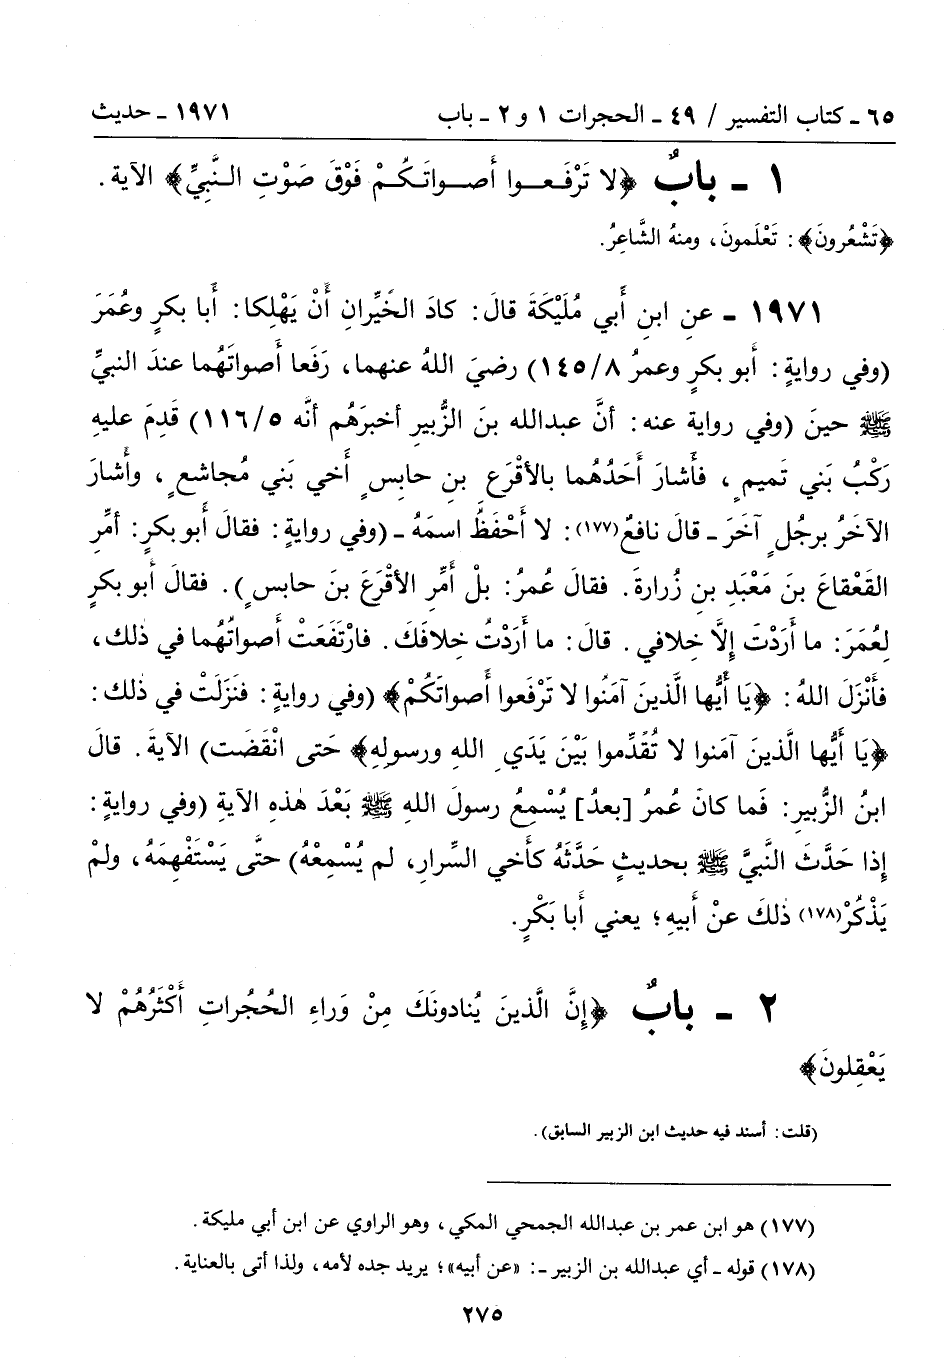 ٦٥ - كتاب التفسير / ٤٩ - الحجرات ١ و ٢ - باب ١٩٧١ - حديث
١ - بابٌ ﴿لا تَرْفَعوا أصواتَكُمْ فَوْقَ صَوْتِ النَّبيِّ﴾ الآية.
﴿تَشْعُرونَ﴾: تَعْلَمونَ، ومنهُ الشَّاعِرُ.
١٩٧١ - عنِ ابنِ أَبي مُلَيْكَةَ قالَ: كادَ الخَيِّرانِ أَنْ يَهْلِكا: أَبا بكرٍ وعُمَرَ
(وفي روايةٍ: أبو بكرٍ وعمرُ ٨/١٤٥) رضيَ اللهُ عنهما، رَفَعا أصواتَهُما عندَ النبيِّ
ﷺ حينَ (وفي رواية عنه: أنَّ عبدالله بنَ الزُّبير أخبرَهُم أنَّه ٥/١١٦) قَدِمَ عليهِ
رَكْبُ بَني تَميمٍ، فأشارَ أَحَدُهُما بالأقْرَعِ بنِ حابسٍ أخي بَني مُجاشعٍ، وأشارَ
الآخَرُ برجُلٍ آخَرَ - قالَ نافعٌ(١٧٧): لا أَحْفَظُ اسمَهُ - (وفي روايةٍ: فقالَ أبو بكر: أمِّرِ
القَعْقاعَ بنَ مَعْبَدِ بنِ زُرارةَ. فقالَ عُمرُ: بلْ أَمِّرِ الأقْرَعَ بنَ حابسٍ). فقالَ أبو بكرٍ
لِعُمَرَ: ما أَرَدْتَ إلَّا خِلافي. قالَ: ما أَرَدْتُ خِلافَكَ. فارْتَفَعَتْ أصواتُهُما في ذلك،
فأنْزَلَ اللهُ: ﴿يَا أَيُّها الَّذينَ آمَنُوا لا تَرْفَعوا أصواتَكُمْ﴾ (وفي روايةٍ: فنَزَلَتْ في ذلك:
﴿يَا أَيُّها الَّذينَ آمَنوا لا تُقَدِّموا بَيْنَ يَدَيِ اللهِ ورسولِهِ﴾ حَتى انْقَضَت) الآيةَ. قالَ
ابنُ الزُّبيرِ: فَما كانَ عُمرُ [بعدُ] يُسْمِعُ رسولَ اللهِ ﷺ بَعْدَ هٰذهِ الآيةِ (وفي روايةٍ:
إذا حَدَّثَ النَّبيَّ ﷺ بحديثٍ حَدَّثَهُ كأَخي السِّرارِ، لم يُسْمِعْهُ) حتَّى يَسْتَفْهِمَهُ، ولمْ
يَذْكُرْ(١٧٨) ذٰلكَ عنْ أَبيهِ؛ يعني أَبا بَكْرٍ.
٢ - بابٌ ﴿إنَّ الَّذينَ يُنادونَكَ مِنْ وَراءِ الحُجُراتِ أَكْثَرُهُمْ لا
يَعْقِلونَ﴾
(قلت: أسند فيه حديث ابن الزبير السابق).
(١٧٧) هو ابن عمر بن عبدالله الجمحي المكي، وهو الراوي عن ابن أبي مليكة.
(١٧٨) قوله - أي عبدالله بن الزبير -: «عن أبيه»؛ يريد جده لأمه، ولذا أتى بالعناية.
٢٧٥